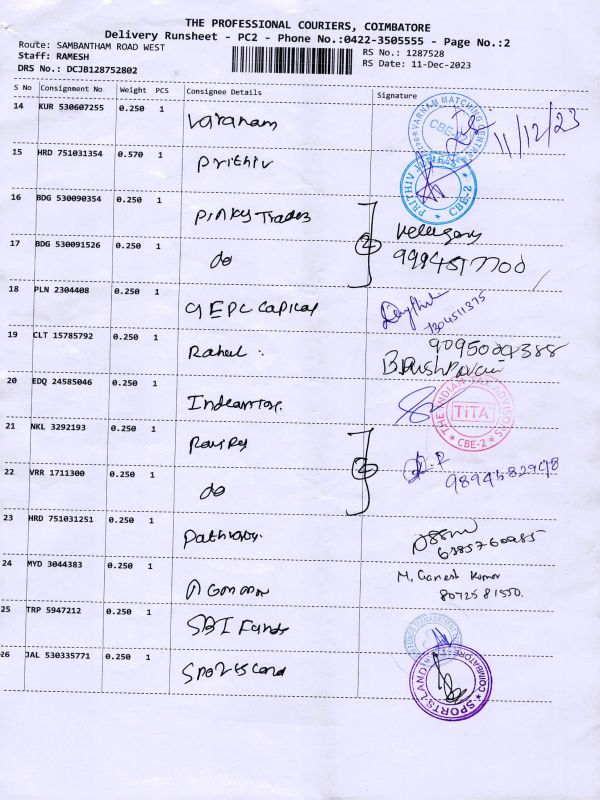 THE PROFESSIONAL COURIERS, COIMBATORE
Delivery Runsheet - PC2 - Phone No.:0422-3505555 - Page No.:2
Route: SAMBANTHAM ROAD WEST
Staff: RAMESH
DRS No.: DCJB128752802
RS No.: 1287528
RS Date: 11-Dec-2023
S No Consignment No Weight PCS Consignee Details Signature
14 KUR 530607255 0.250 1 VARNAM MATCHING CENTRE CBE-12 11/12/23
15 HRD 751031354 0.570 1 Prithiv CBE-2
16 BDG 530090354 0.250 1 Pinky Traders
17 BDG 530091526 0.250 1 do 2
18 PLN 2304408 0.250 1 GEPL Capital 7304511375
19 CLT 15785792 0.250 1 Rahul 9095004388
20 EDQ 24585046 0.250 1 THE INDIAN TAX ADVISORS TiTA CBE-2
21 NKL 3292193 0.250 1
22 VRR 1711300 0.250 1 do 2
23 HRD 751031251 0.250 1 Pathway
24 MYD 3044383 0.250 1 M. Ganesh Kumar
8072581550.
25 TRP 5947212 0.250 1 SBI Funds
26 JAL 530335771 0.250 1 Sportsland SPORTS LAND COIMBATORE